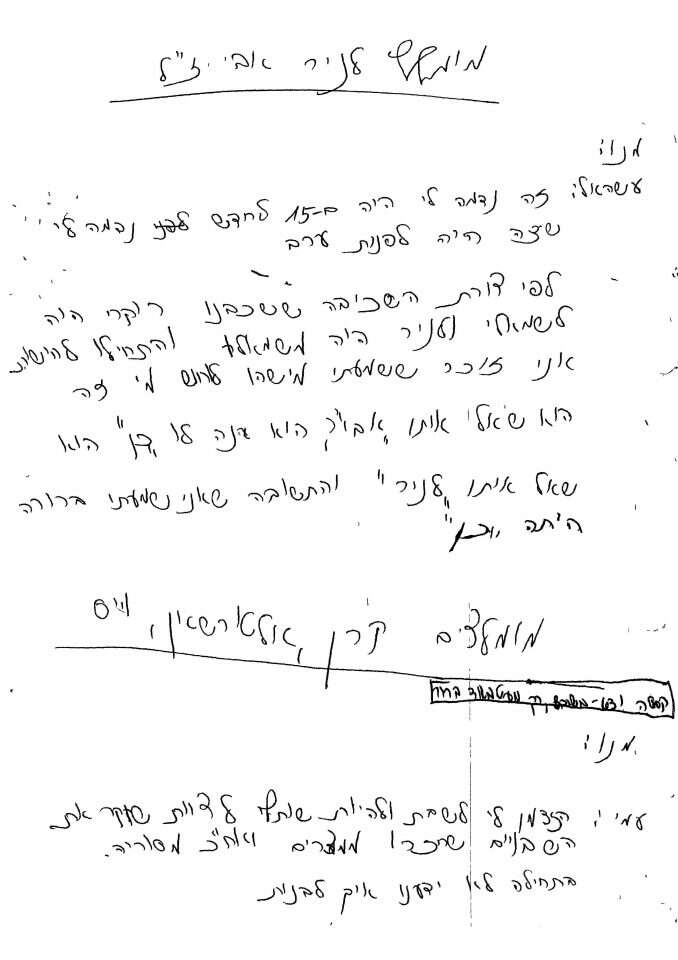 מומלץ לניר אבי ז"ל
מנוי:
זה נדמה לי היה ב-15 לחדש לפני נדמה לי
שזה היה לפנות ערב
לפי צורת השכיבה ששכבנו היה
לשמאלי ולניר היה משמאלו והתחילו
אני זוכר ששמעתי מישהו מי זה
הוא שאל אותו "אבי", הוא ענה לו "כן" הוא
שאל איתו "לניר" והתשובה שאני שמעתי ברורה
היתה "כן"
מומלצים קרן, וייס
מנוי:
עמי: הזדמן לי לשבת ולהיות שותף לצוות שחקר את
השבויים שחזרו ממצרים ואח"כ מסוריה.
בתחילה לא ידענו איך לבנות